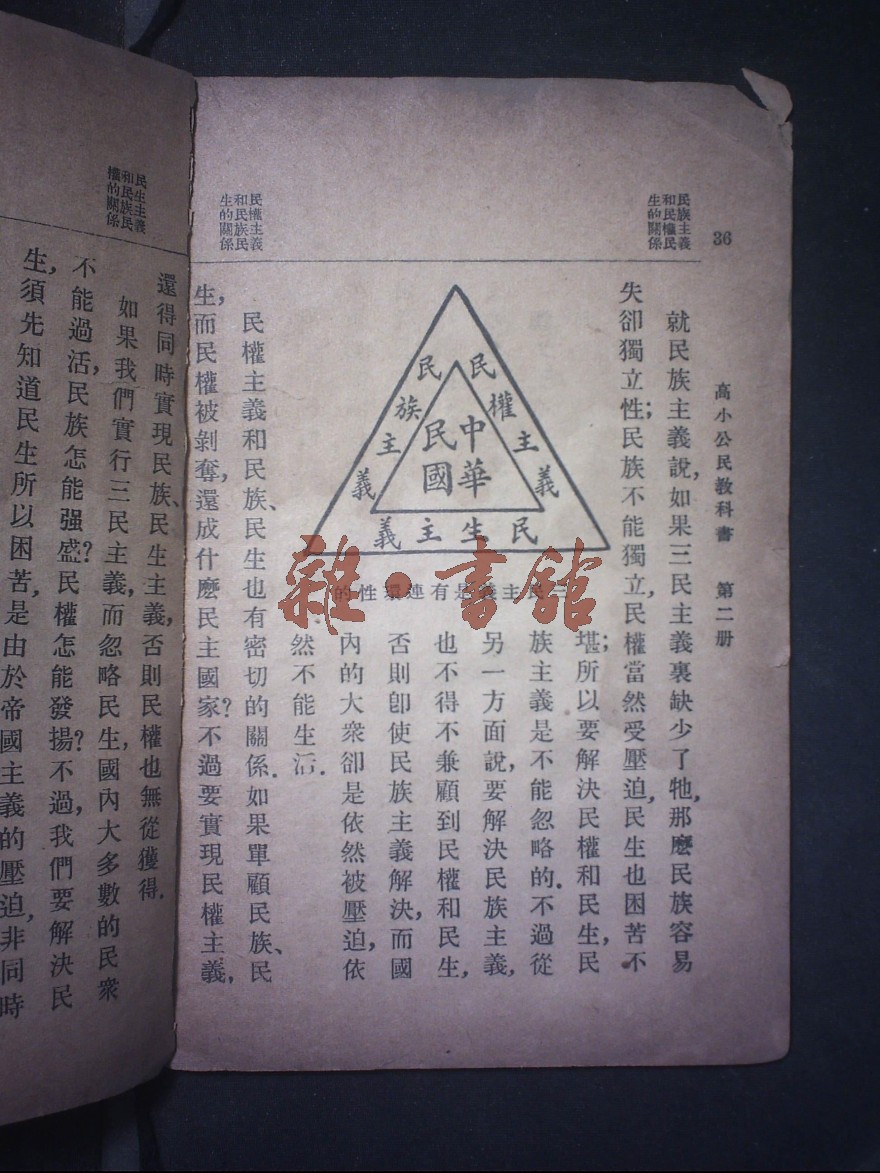 36
高小公民教科書 第二册
民族主義
和民權民
生的關係
就民族主義說,如果三民主義裏缺少了牠,那麽民族容易
失卻獨立性;民族不能獨立,民權當然受壓迫,民生也困苦不
堪;所以要解決民權和民生,民
族主義是不能忽略的.不過從
另一方面說,要解決民族主義,
也不得不兼顧到民權和民生,
否則卽使民族主義解決,而國
內的大衆卻是依然被壓迫,依
然不能生活.
民族主義
民權主義
民生主義
中華
民國
三民主義是有連環性的
民權主義
和民族民
生的關係
民權主義和民族、民生也有密切的關係.如果單顧民族、民
生,而民權被剝奪,還成什麽民主國家?不過要實現民權主義,
還得同時實現民族、民生主義,否則民權也無從獲得.
民生主義
和民族民
權的關係
如果我們實行三民主義,而忽略民生,國內大多數的民衆
不能過活,民族怎能强盛?民權怎能發揚?不過,我們要解決民
生,須先知道民生所以困苦,是由於帝國主義的壓迫,非同時
雜·書館